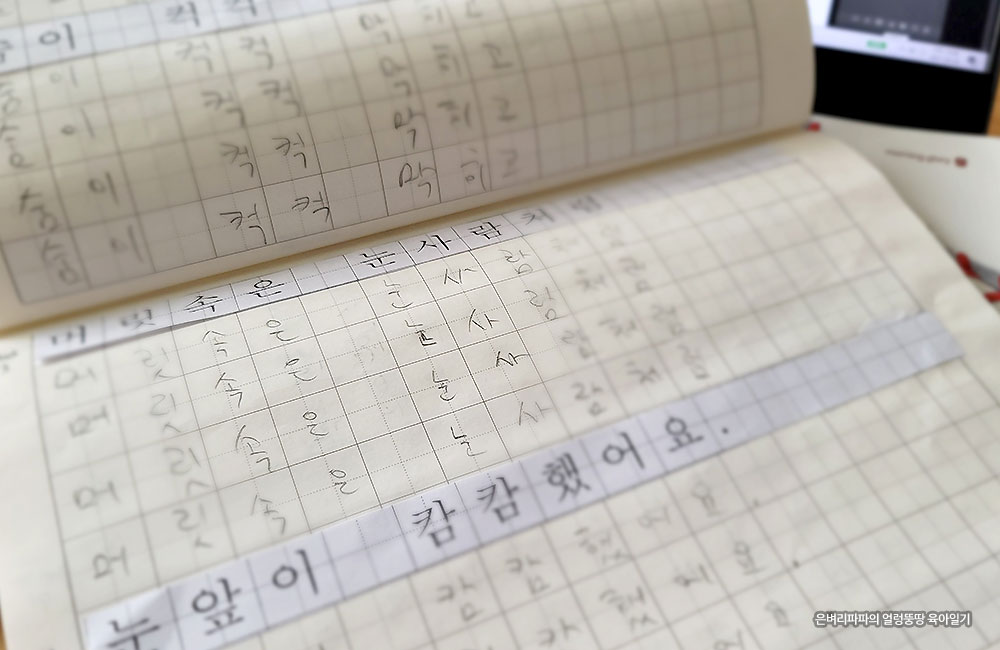 숨이 컥컥
이 컥컥 막히고
숨이 컥컥 막히고
숨이 컥컥 막히고
숨이 컥컥 막히고
머릿속은 눈사람처럼
머릿속은 눈사람처럼
머릿속은 눈사람처럼
머릿속은 눈사람처럼
머릿속은 눈사람처럼
눈앞이 캄캄했어요.
캄캄했어요.
캄했어요.
은벼리파파의 얼렁뚱땅 육아일기